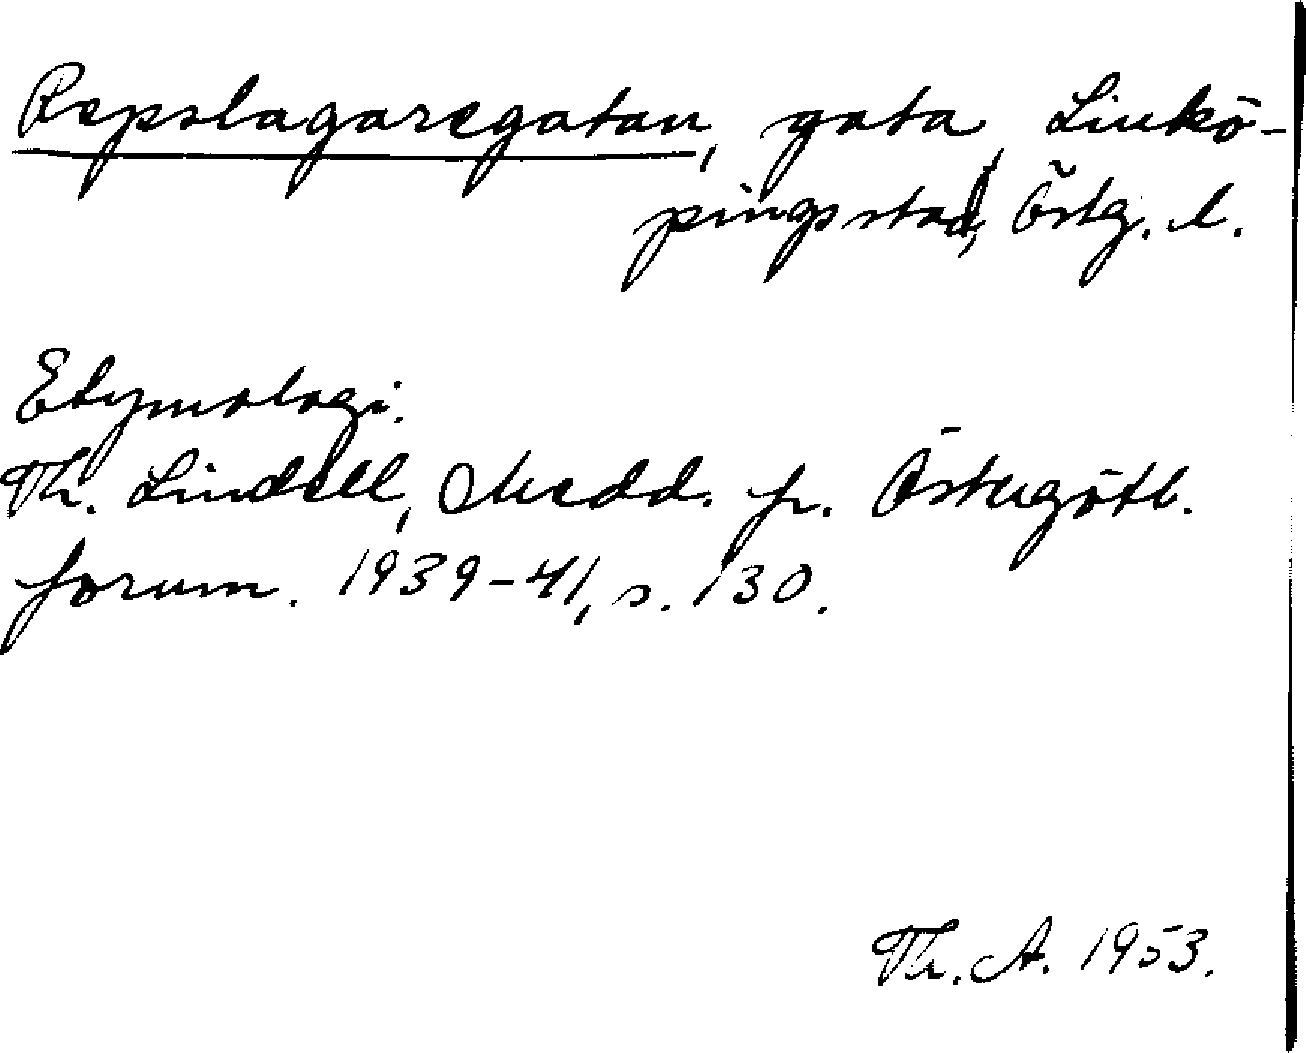 Repslagaregatan, gata, Linkö-
pings stad, Östg. l.
Etymologi.
Th. Lindell, Medd. fr. Östergötl.
fornm. 1939-41, s. 130.
Th. A. 1953.